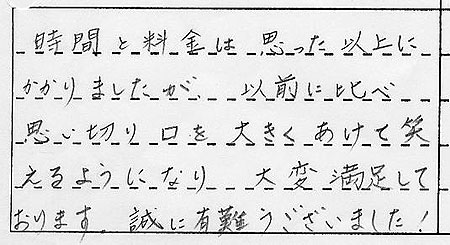 時間と料金は思った以上に
かかりましたが、以前に比べ
思い切り口を大きくあけて笑
えるようになり、大変満足して
おります。誠に有難うございました!